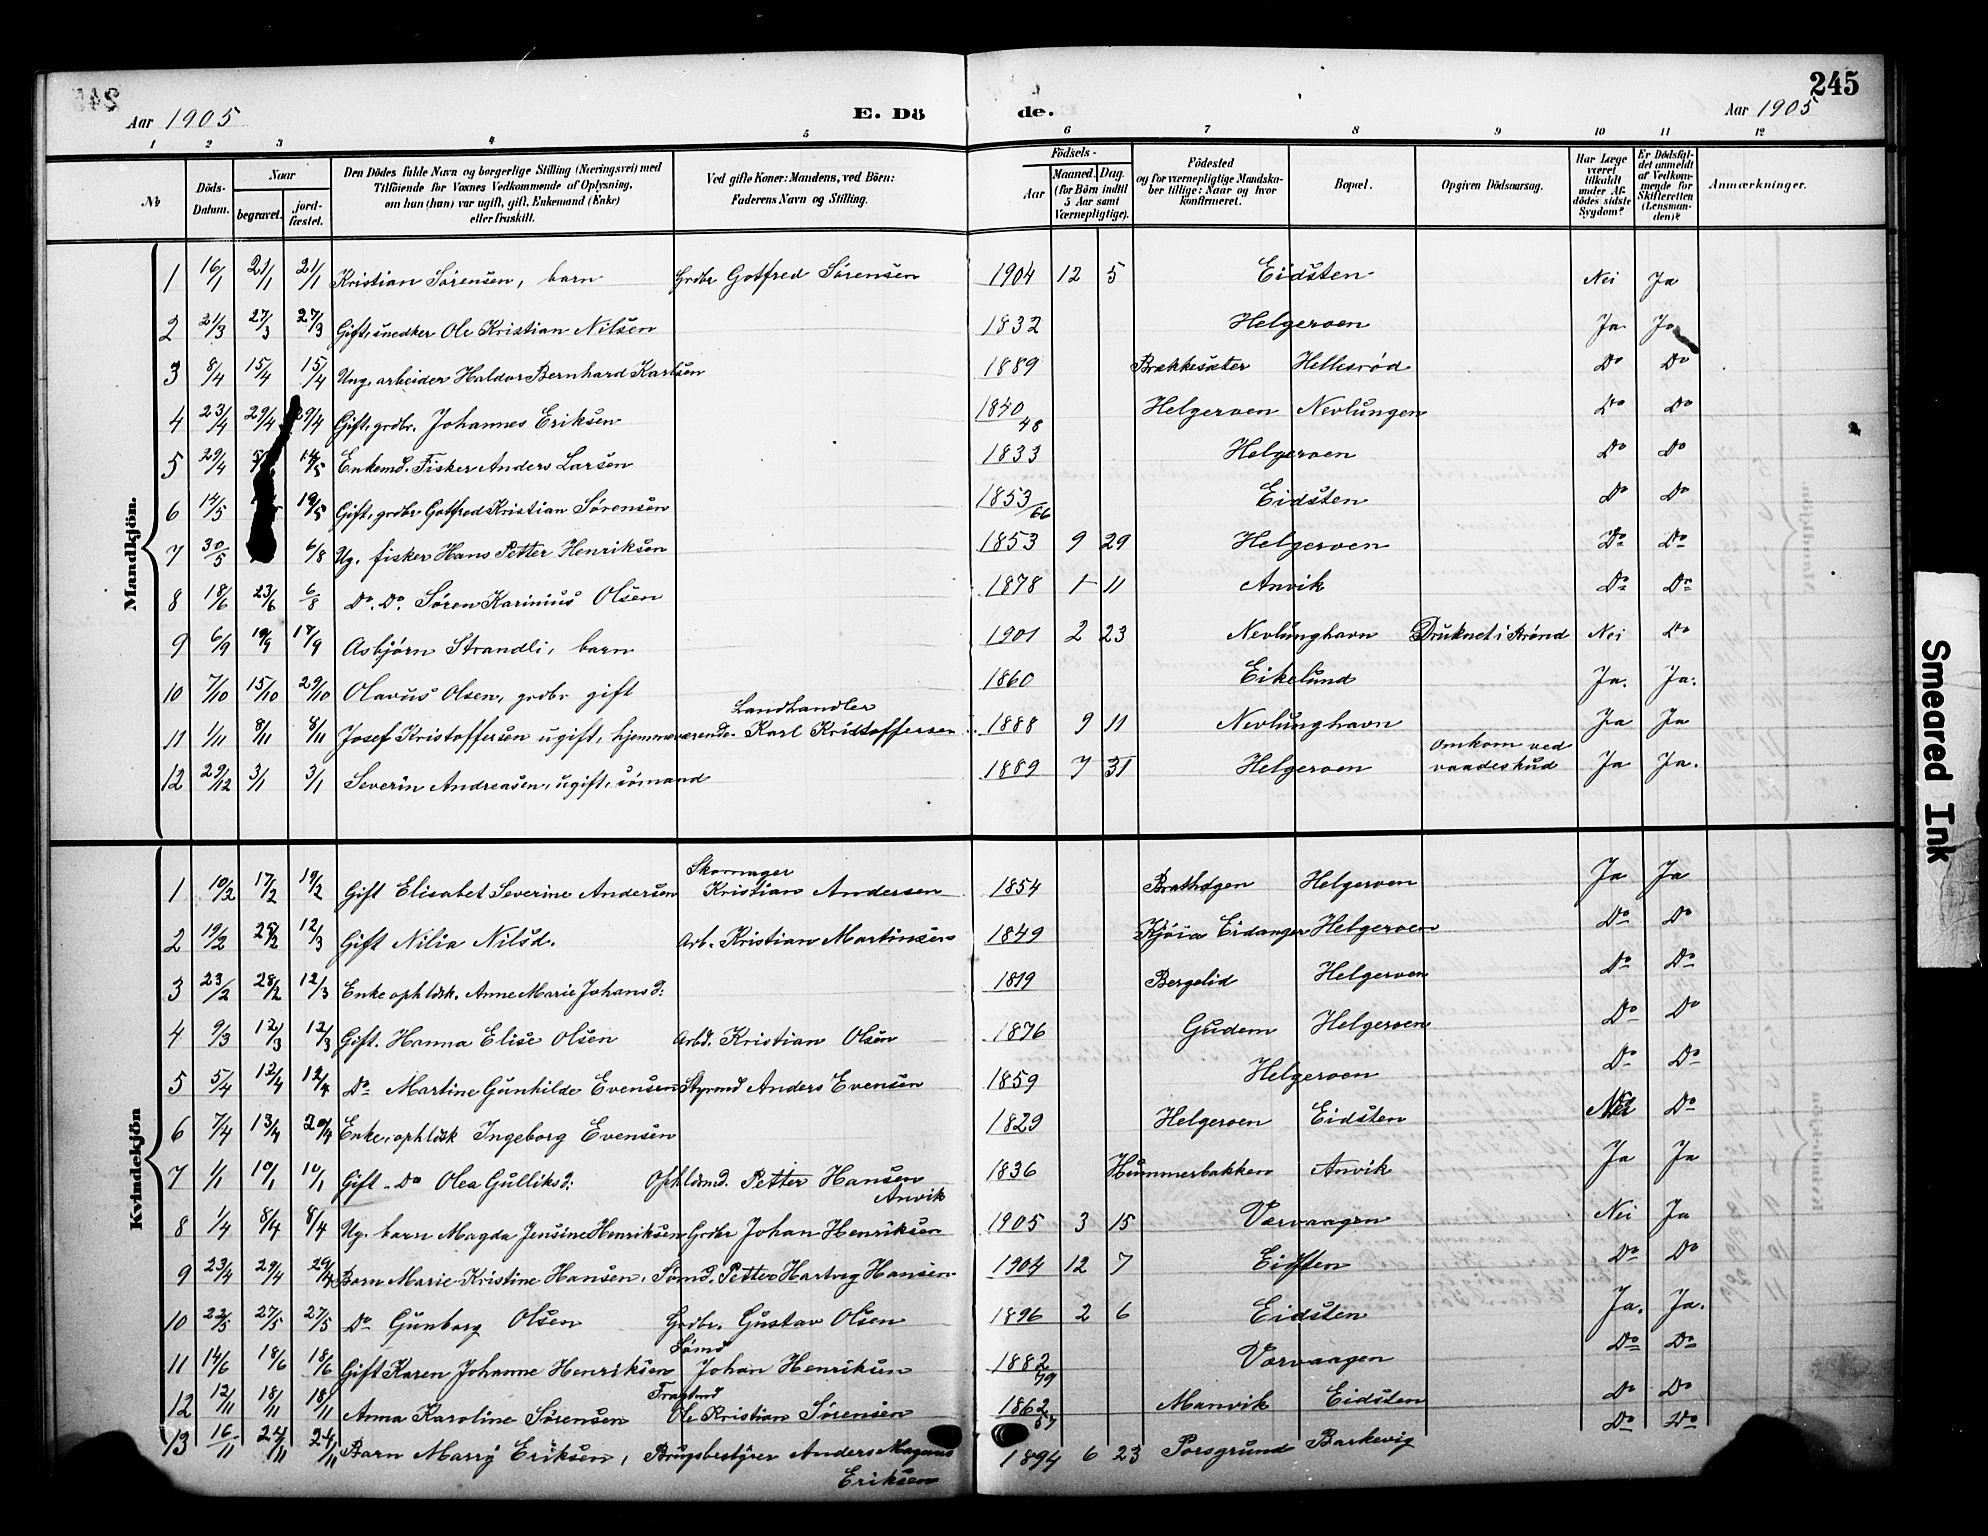 245
Aar 1905 E. Dö de. Aar 1905
1 2 3 4 5 6 7 8 9 10 11 12
No
Döds-Datum.
Naar
begravet.
jord-fæstet.
Den Dödes fulde Navn og borgerlige Stilling (Næringsvei) med
Tilföiende for Voxnes Vedkommende af Oplysning,
om han (hun) var ugift, gift, Enkemand (Enke)
eller fraskilt.
Ved gifte Koner: Mandens, ved Börn:
Faderens Navn og Stilling.
Födsels-
Aar
Maaned. Dag.
(for Börn indtil
5 Aar samt
Værnepligtige).
Födested
og for værnepligtige Mandska-
ber tillige: Naar og hvor
konfirmeret.
Bopæl.
Opgiven Dödsaarsag.
Har Læge
været
tilkaldt
under Af-
dödes sidste
Sygdom?
Er Dödsfal-
det anmeldt
af Vedkom-
mende for
Skifteretten
(Lensman-
den)?
Anmærkninger.
Mandkjön.
1 16/1 21/1 21/1 Kristian Sørensen, barn Grdbr Gotfred Sørensen 1904 12 5 Eidsten Nei Ja
2 21/3 27/3 27/3 Gift, snedker Ole Kristian Nilsen 1832 Helgeroen Ja Ja
3 8/4 15/4 15/4 Ung. arbeider Haldor Bernhard Karlsen 1889 Brækkesæter Hellesrød Do Do
4 23/4 29/4 29/4 Gift, grdbr. Johannes Eriksen 1840/48 Helgeroen Nevlungen Do Do
5 29/4 14/5 Enkemd. Fisker Anders Larsen 1833 Helgeroen Do Do
6 14/5 19/5 Gift, grdbr Gotfred Kristian Sørensen 1853/66 Eidsten Do Do
7 30/5 6/8 Ug. fisker Hans Petter Henriksen 1853 9 29 Helgeroen Do Do
8 18/6 23/6 6/8 Do. Do. Søren Karinius Olsen 1878 1 11 Anvik Do Do
9 6/9 10/9 17/9 Asbjørn Strandli, barn 1901 2 23 Nevlunghavn Druknet i Brønd Nei Do
10 7/10 15/10 29/10 Olavus Olsen, grdbr gift 1860 Eikelund Ja. Ja.
Landhandler
11 1/11 8/11 8/11 Josef Kristoffersen ugift, hjemmeværende. Karl Kristoffersen 1888 9 11 Nevlunghavn Ja Ja
Omkom ved
12 29/12 3/1 3/1 Severin Andreasen, ugift, sømand 1889 7 31 Helgeroen vaadeskud Ja Ja.
Kvindekjön
Skomager
1 10/2 17/2 19/2 Gift Elisabet Severine Andersen Kristian Andersen 1854 Brathagen Helgeroen Ja Ja
2 19/2 28/2 12/3 Gift Nilia Nilsd. Arb. Kristian Martinsen 1849 Kjøia Eidanger Helgeroen Do Do
3 23/2 28/2 12/3 Enke ophldsk. Anne Marie Johansd: 1819 Bergelid Helgeroen Do Do
4 9/3 12/3 12/3 Gift. Hanna Elise Olsen Arbd. Kristian Olsen 1876 Gudem Helgeroen Do Do
5 5/4 12/4 12/4 Do Martine Gunhilde Evensen Styrmd Anders Evensen 1859 Helgeroen Do Do
6 7/4 13/4 20/4 Enke, ophldsk Ingeborg Evensen 1829 Helgeroen Eidsten Nei Do
7 1/1 10/1 10/1 Gift. Do Olea Gulliksd: Ophldsmd. Petter Hansen 1836 Hummerbakken Anvik Ja Ja
Anvik
8 1/4 8/4 8/4 Ug. barn Magda Jensine Henriksen Grdbr Johan Henriksen 1905 3 15 Varvaagen Nei Ja
9 23/4 29/4 29/4 Barn Marie Kristine Hansen, Sømd. Petter Hartvig Hansen 1904 12 7 Eidsten Do Do
10 22/5 27/5 27/5 Do Gunborg Olsen Grdbr. Gustav Olsen 1896 2 6 Eidsten Ja. Ja.
Sømd
11 14/6 18/6 18/6 Gift Karen Johanne Henriksen Johan Henriksen 1882/79 Varvaagen Do Do
12 12/11 18/11 18/11 Anna Karoline Sørensen Ole Kristian Sørensen 1862/57 Manvik Eidsten Do Do
13 16/11 24/11 24/11 Barn Marry Eriksen, Brugsbestyrer Anders Magnus 1894 6 23 Porsgrund Barkevig Do Do
Eriksen
Smeared Ink